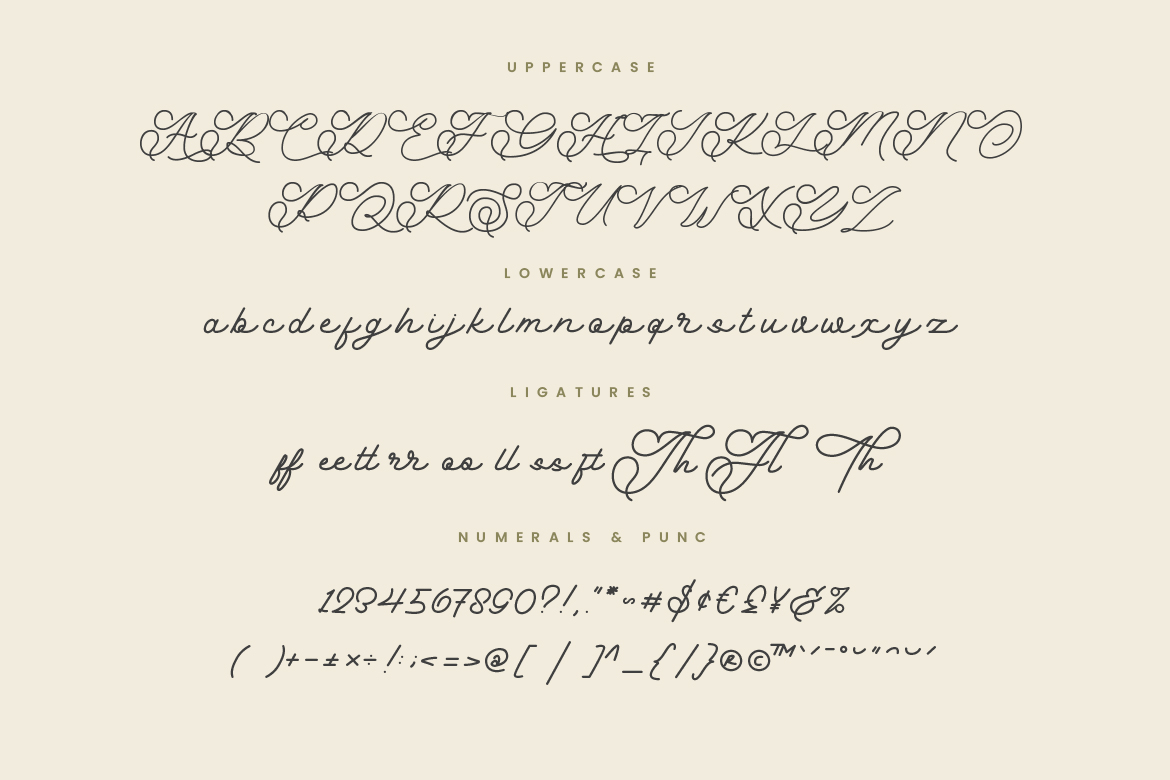 UPPERCASE
ABCDEFGHIJKLMNO
PQRSTUVWXYZ
LOWERCASE
abcdefghijklmnopqrstuvwxyz
LIGATURES
ff ee tt rr oo ll ss ft Th Fl Th
NUMERALS & PUNC
1234567890?!,."*~#$¢€£¥&%
( )+-±×÷/:;<=>@[ / ]^_{/}®©™